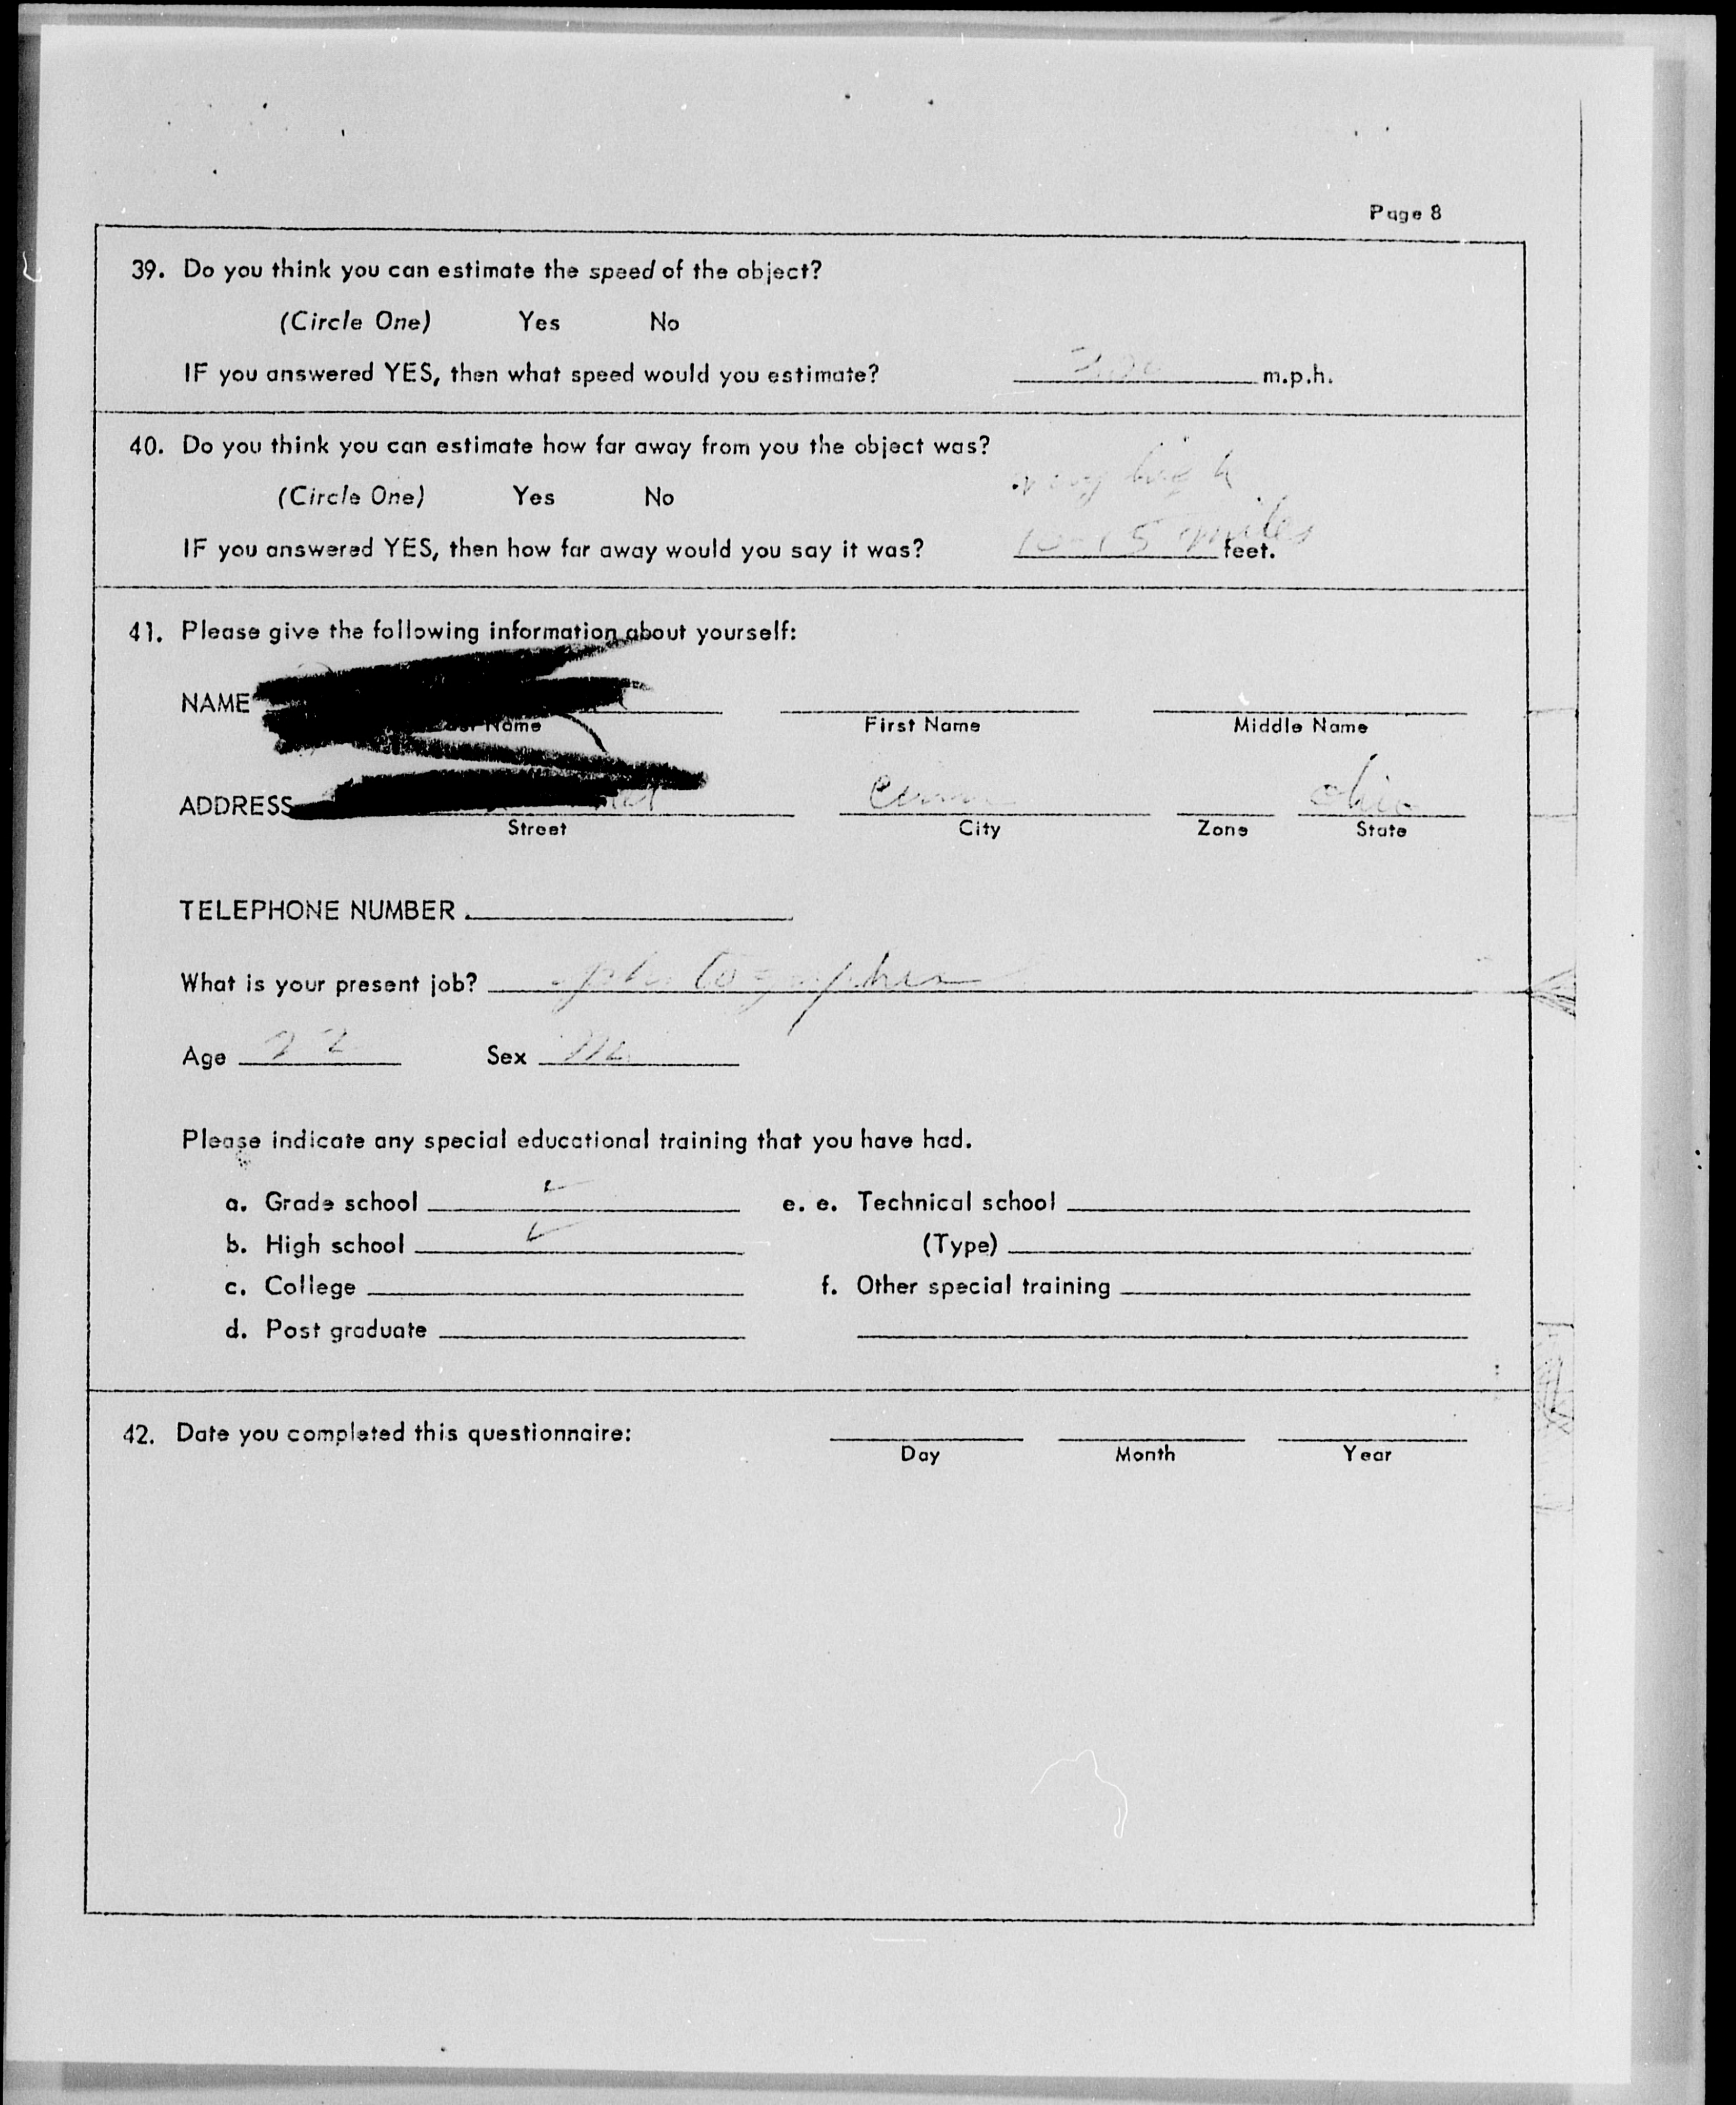 Page 8
39. Do you think you can estimate the speed of the object?
(Circle One) Yes No
IF you answered YES, then what speed would you estimate? m.p.h.
40. Do you think you can estimate how far away from you the object was?
very high
(Circle One) Yes No
10-15 miles
IF you answered YES, then how far away would you say it was? feet.
41. Please give the following information about yourself:
NAME
Name First Name Middle Name
ADDRESS Cinn ohio
Street City Zone State
TELEPHONE NUMBER
What is your present job? photographer
Age 22 Sex M
Please indicate any special educational training that you have had.
a. Grade school ✓ e. e. Technical school
b. High school ✓ (Type)
c. College f. Other special training
d. Post graduate
42. Date you completed this questionnaire:
Day Month Year